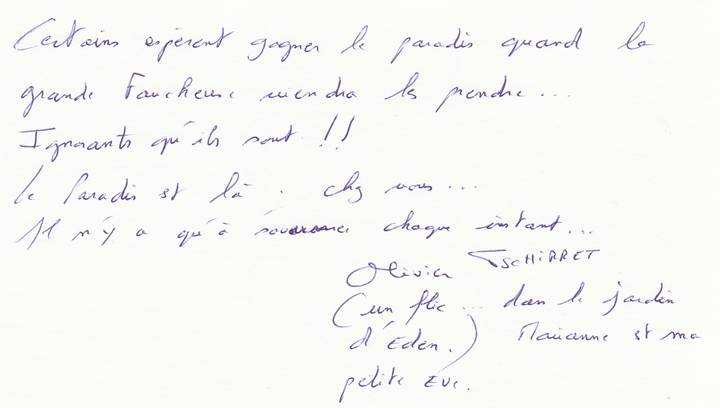 Certains espèrent gagner le paradis quand la
grande Faucheuse viendra les prendre...
Ignorants qu'ils sont !!
Le Paradis est là. chez vous...
Il n'y a qu'à savourer chaque instant...
Olivier TSCHIRRET
(un flic... dans le jardin
d'Eden.) Marianne est ma
petite Eve.